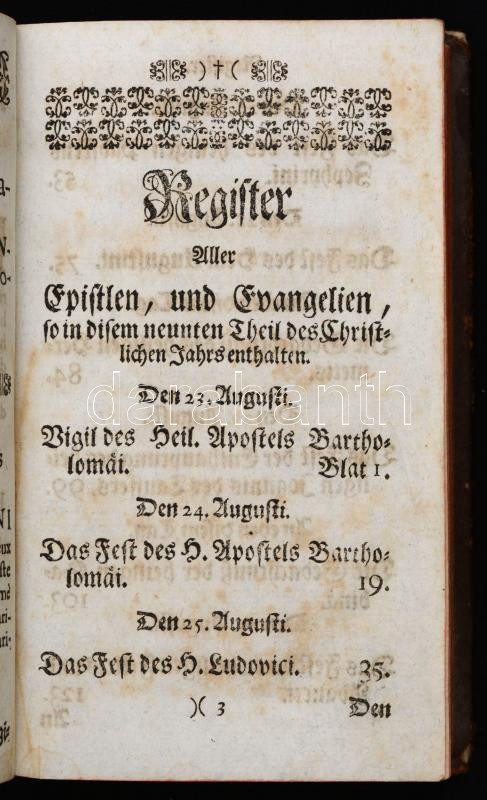 )†(
Register
Aller
Epistlen, und Evangelien,
so in disem neunten Theil des Christ-
lichen Jahrs enthalten.
Den 23. Augusti.
darabanth
Vigil des Heil. Apostels Bartho-
lomäi. Blat 1.
Den 24. Augusti.
Das Fest des H. Apostels Bartho-
lomäi. 19.
Den 25. Augusti.
Das Fest des H. Ludovici. 35.
)( 3 Den